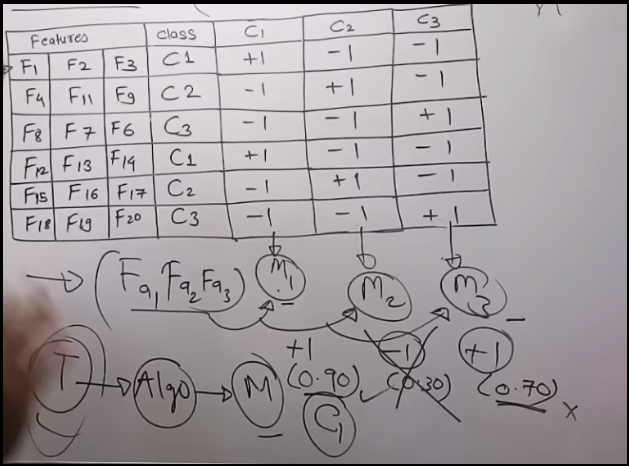 Features class C1 C2 C3
F1 F2 F3 C1 +1 -1 -1
F4 F11 F9 C2 -1 +1 -1
F8 F7 F6 C3 -1 -1 +1
F12 F13 F14 C1 +1 -1 -1
F15 F16 F17 C2 -1 +1 -1
F18 F19 F20 C3 -1 -1 +1
(Fa1, Fa2 Fa3) M1 M2 M3
+1 -1 +1
T Algo M (0.90) (0.30) (0.70) x
C1